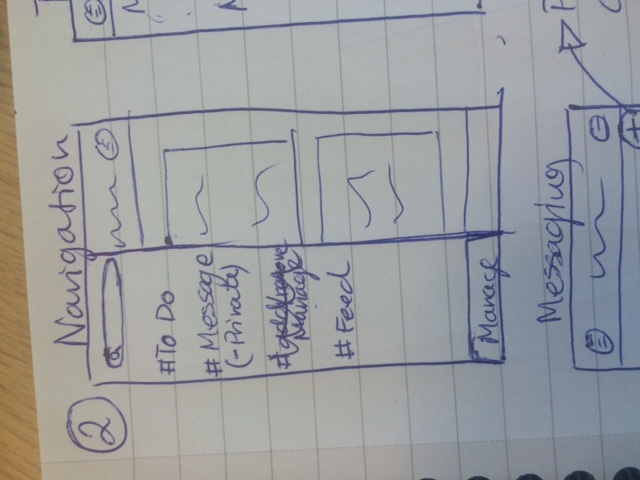 2
Navigation
#To Do
#Message
(-Private)
Manage
#Feed
Manage
Messaging